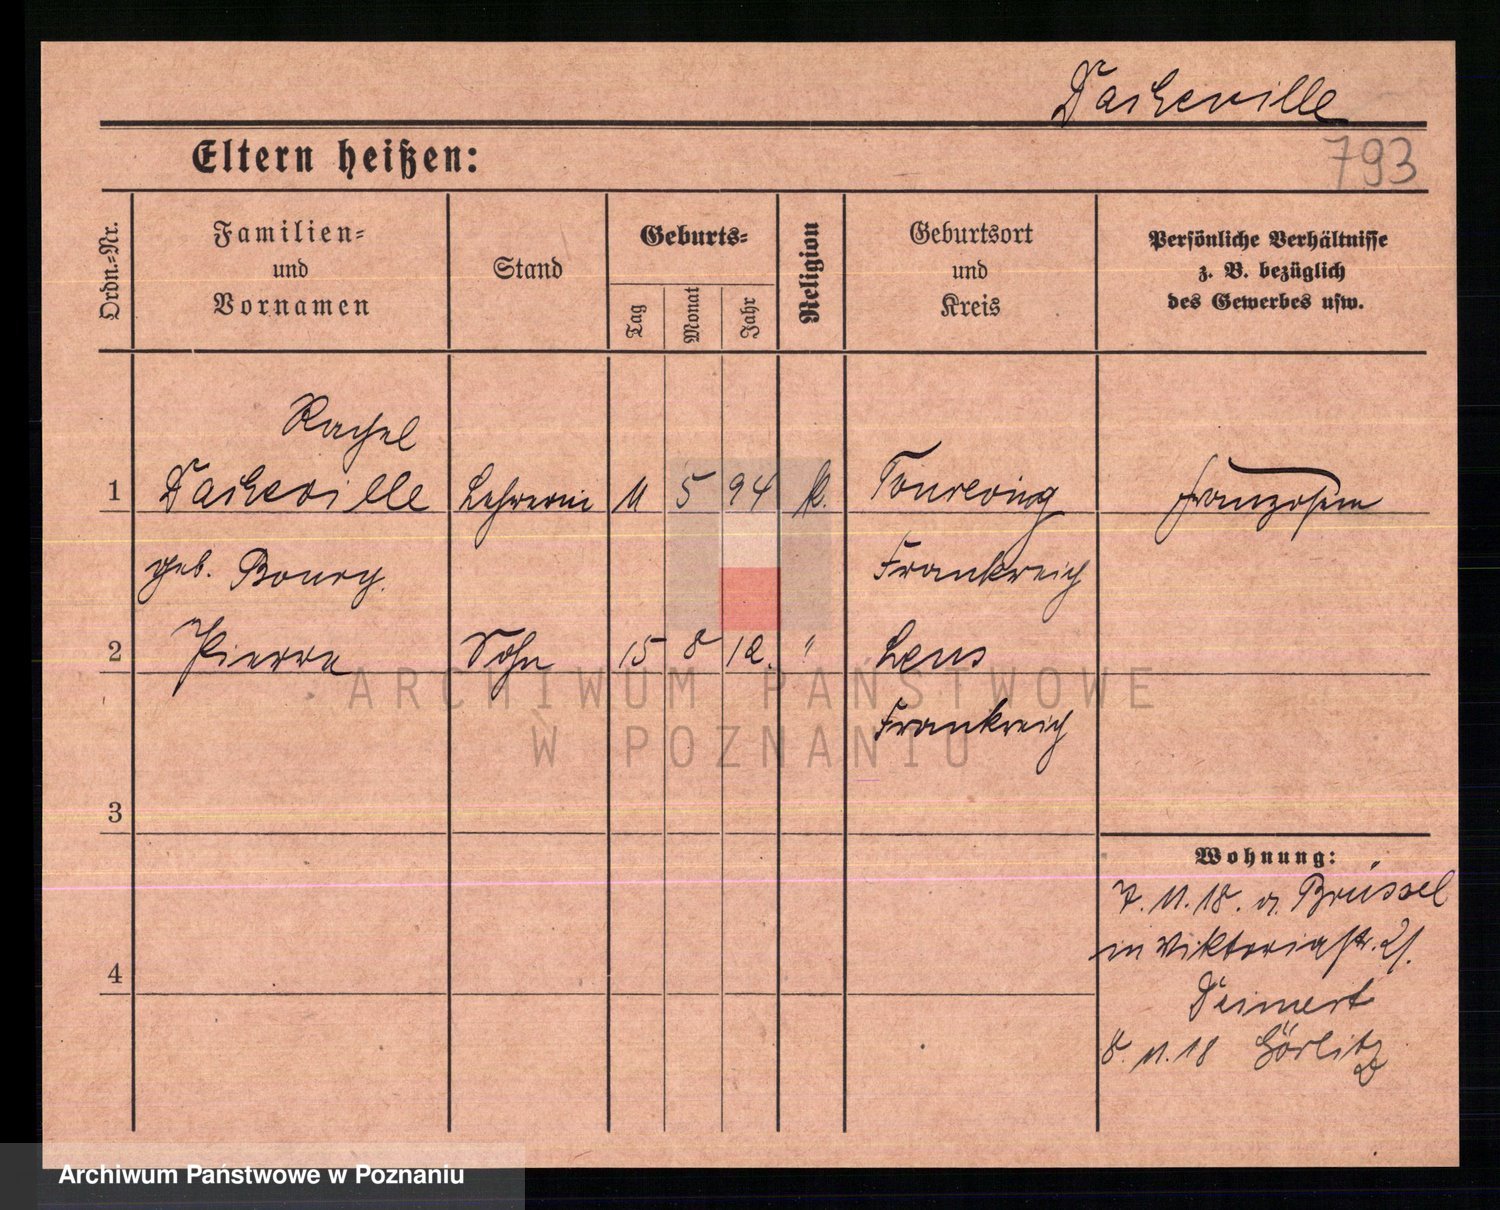 Dacheville
793
Eltern heißen:
Ordn.-Nr.
Familien-
und
Vornamen
Stand
Geburts-
Tag
Monat
Jahr
Religion
Geburtsort
und
Kreis
Persönliche Verhältnisse
z. B. bezüglich
des Gewerbes usw.
Rachel
1 Dacheville Lehrerin 11 5 94 k. Französin
geb. Bourg. Frankreich
2 Pierre Sohn 15 8 12. " Lens
Frankreich
3
4
Wohnung:
7. 11. 18. a. Brüssel
in Viktoriastr. 21.
Deinert
8. 11. 18 Görlitz
ARCHIWUM PAŃSTWOWE
W POZNANIU
Archiwum Państwowe w Poznaniu